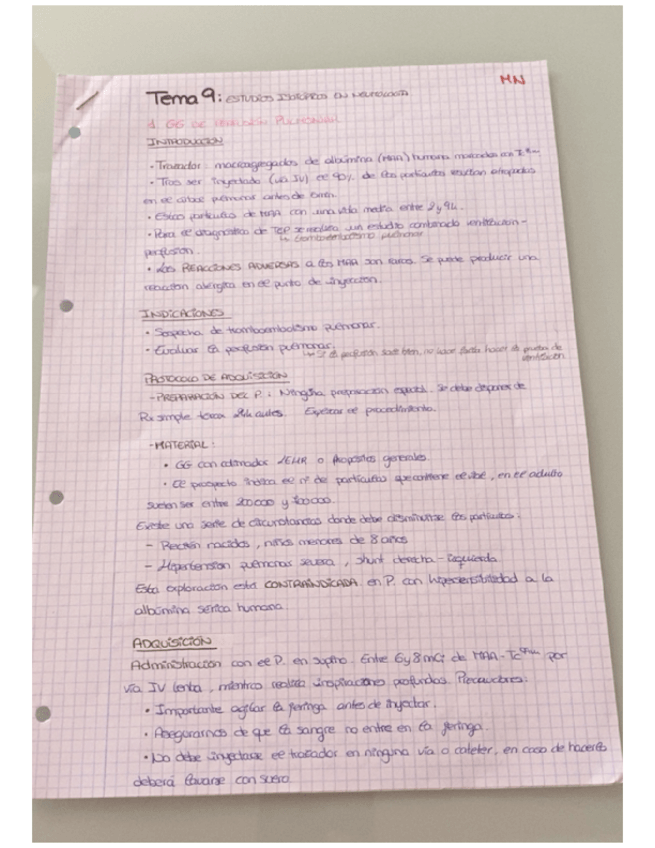 MN
Tema 9: ESTUDIOS ISOTÓPICOS EN NEUMOLOGÍA
1. GG DE PERFUSIÓN PULMONAR
INTRODUCCIÓN
· Trazador: macroagregados de albúmina (MAA) humana marcados con Tc99m
· Tras ser inyectado (vía IV) el 90% de las partículas resultan atrapadas
en el lecho pulmonar antes de
· Estas partículas de MAA con una vida media entre 2 y 9h.
· Para el diagnóstico de TEP se realiza un estudio combinado ventilación-
perfusión.
↳ tromboembolismo pulmonar
· Las REACCIONES ADVERSAS a los MAA son raras. Se puede producir una
reacción alérgica en el punto de inyección.
INDICACIONES
· Sospecha de tromboembolismo pulmonar.
· Evaluar la perfusión pulmonar.
↳ Si la perfusión sale bien, no hace falta hacer la prueba de
ventilación
PROTOCOLO DE ADQUISICIÓN
- PREPARACIÓN DEL P.: Ninguna preparación especial. Se debe disponer de
Rx simple tórax 24h antes. Explicar el procedimiento.
- MATERIAL:
· GG con colimador LEHR o Propósitos generales.
· El prospecto indica el nº de partículas que contiene el vial, en el adulto
suelen ser entre 200000 y
Existe una serie de circunstancias donde debe disminuirse las partículas:
- Recién nacidos, niños menores de 8 años
- Hipertensión pulmonar severa, shunt derecha-izquierda
Esta exploración está CONTRAINDICADA en P. con hipersensibilidad a la
albúmina sérica humana.
ADQUISICIÓN
Administración con el P. en supino. Entre 6 y 8 mCi de MAA-Tc99m por
vía IV lenta, mientras realiza inspiraciones profundas. Precauciones:
· Importante agitar la jeringa antes de inyectar.
· Asegurarnos de que la sangre no entre en la jeringa.
· No debe inyectarse el trazador en ninguna vía o catéter, en caso de hacerlo
deberá lavarse con suero.